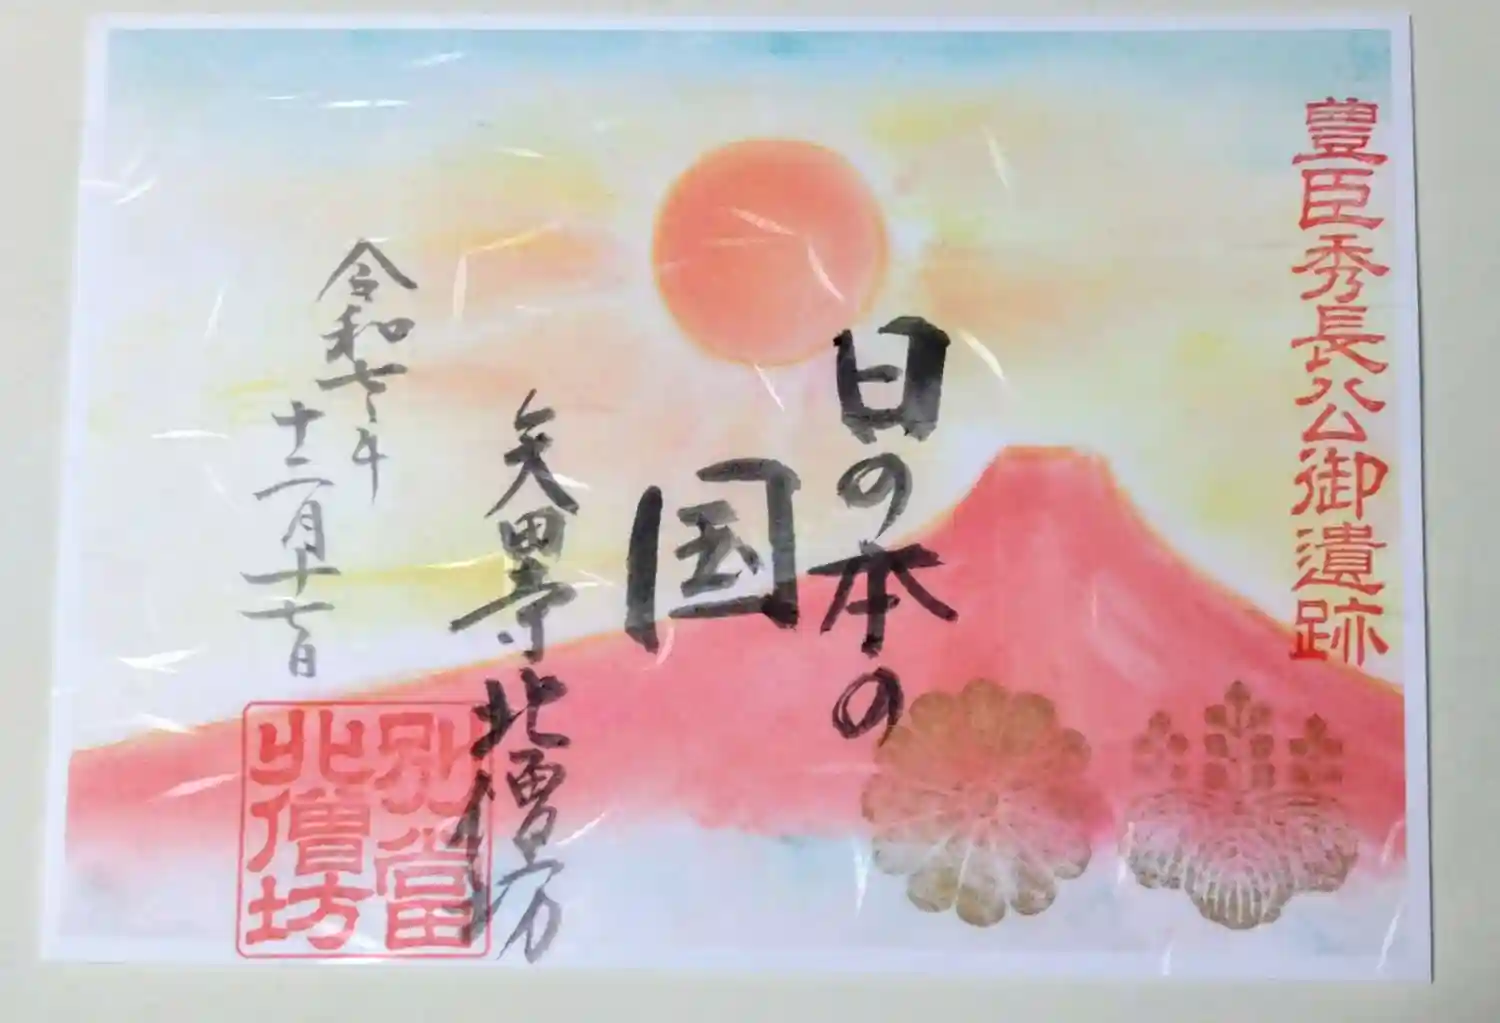 豊臣秀長公御遺跡
日の本の
国
矢田寺北僧坊
令和七年
十二月十七日
別當
北僧坊